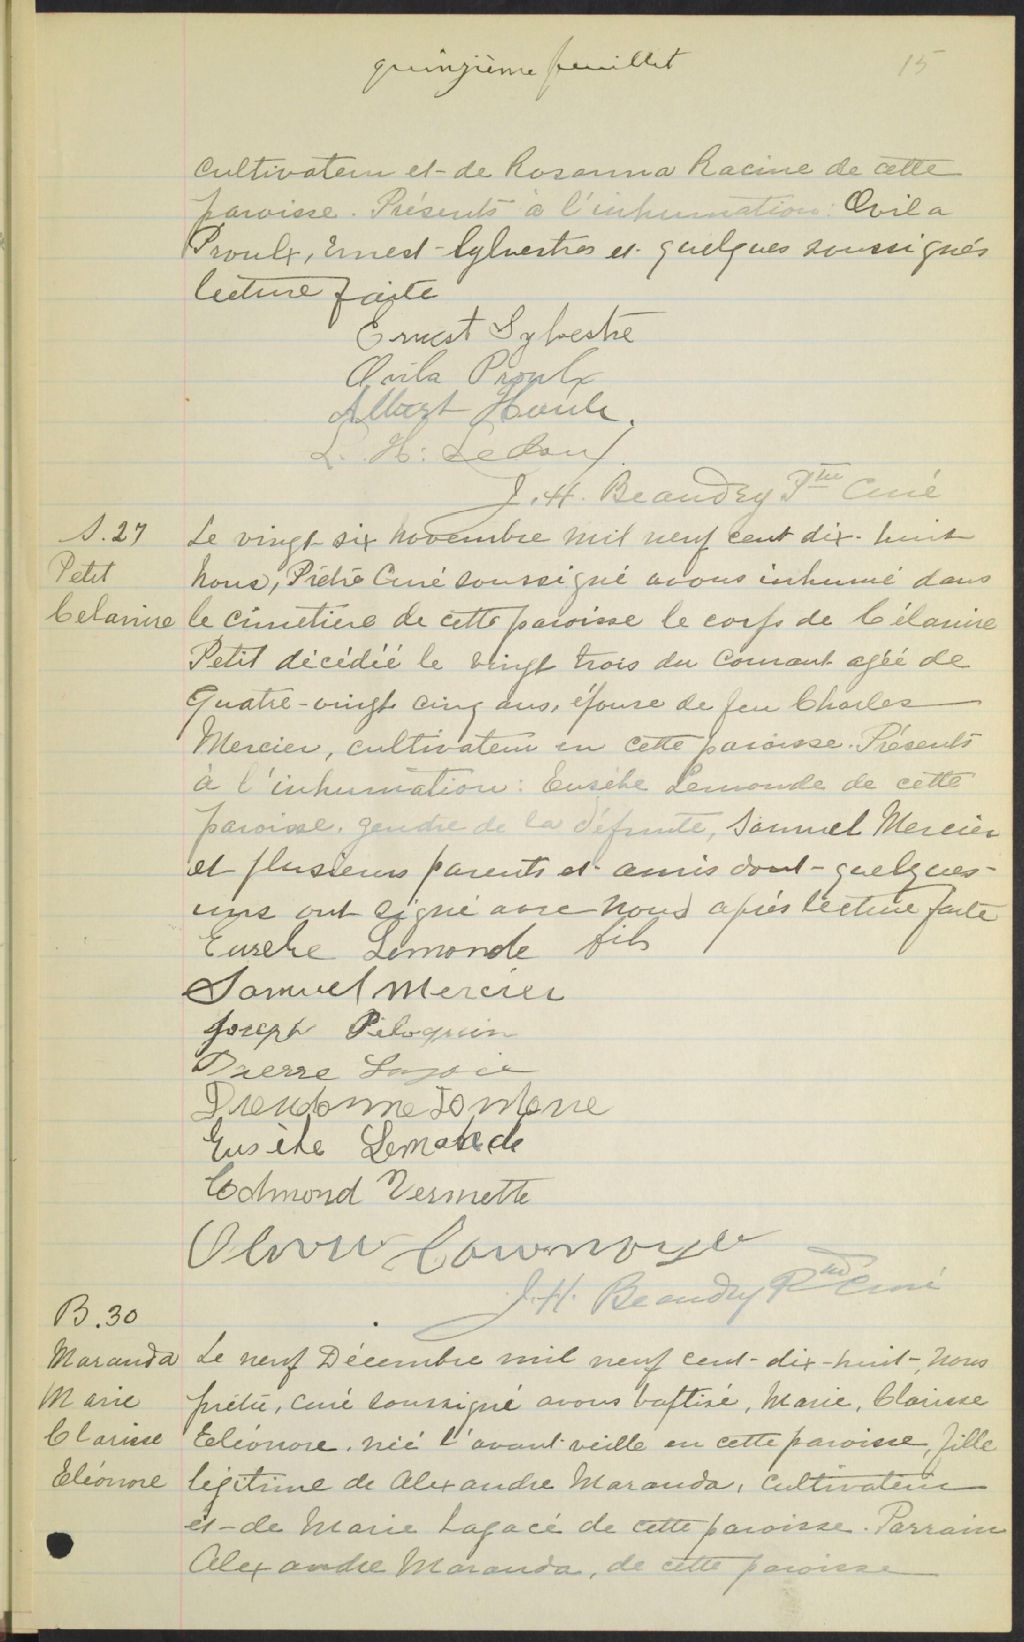 quinzième feuillet
15
cultivateur et de Rosanna Racine de cette
paroisse. Présents à l'inhumation: Ovila
Proulx, Ernest Sylvestres et quelques soussignés
lecture faite
Ernest Sylvestre
Ovila Proulx
Albert Houle.
L. H. Ledoux
J. H. Beaudry Ptre Curé
S. 27
Petit
Celanire
Le vingt six Novembre mil neuf cent dix-huit
Nous, Prêtre Curé soussigné avons inhumé dans
le cimetière de cette paroisse le corps de Célanire
Petit décédée le vingt trois du courant agée de
Quatre-vingt cinq ans, épouse de feu Charles
Mercier, cultivateur en cette paroisse. Présents
à l'inhumation: Eusèbe Lemonde de cette
paroisse, gendre de la défunte, Samuel Mercier
et plusieurs parents et amis dont quelques-
uns ont signé avec Nous après lecture faite
Eusebe Lemonde fils
Samuel Mercier
Joseph Péloquin
Pierre
Dieudonne
Eusèbe Lemonde
Edmond Vermette
Cournoyer
J. H. Beaudry Ptre Curé
B. 30
Maranda
Marie
Clarisse
Eléonore
Le neuf Décembre mil neuf cent-dix-huit, Nous
prêtre, curé soussigné avons baptisé, Marie, Clarisse
Eléonore, née l'avant veille en cette paroisse, fille
légitime de Alexandre Maranda, cultivateur
et de Marie Lagacé de cette paroisse. Parrain
Alexandre Maranda, de cette paroisse